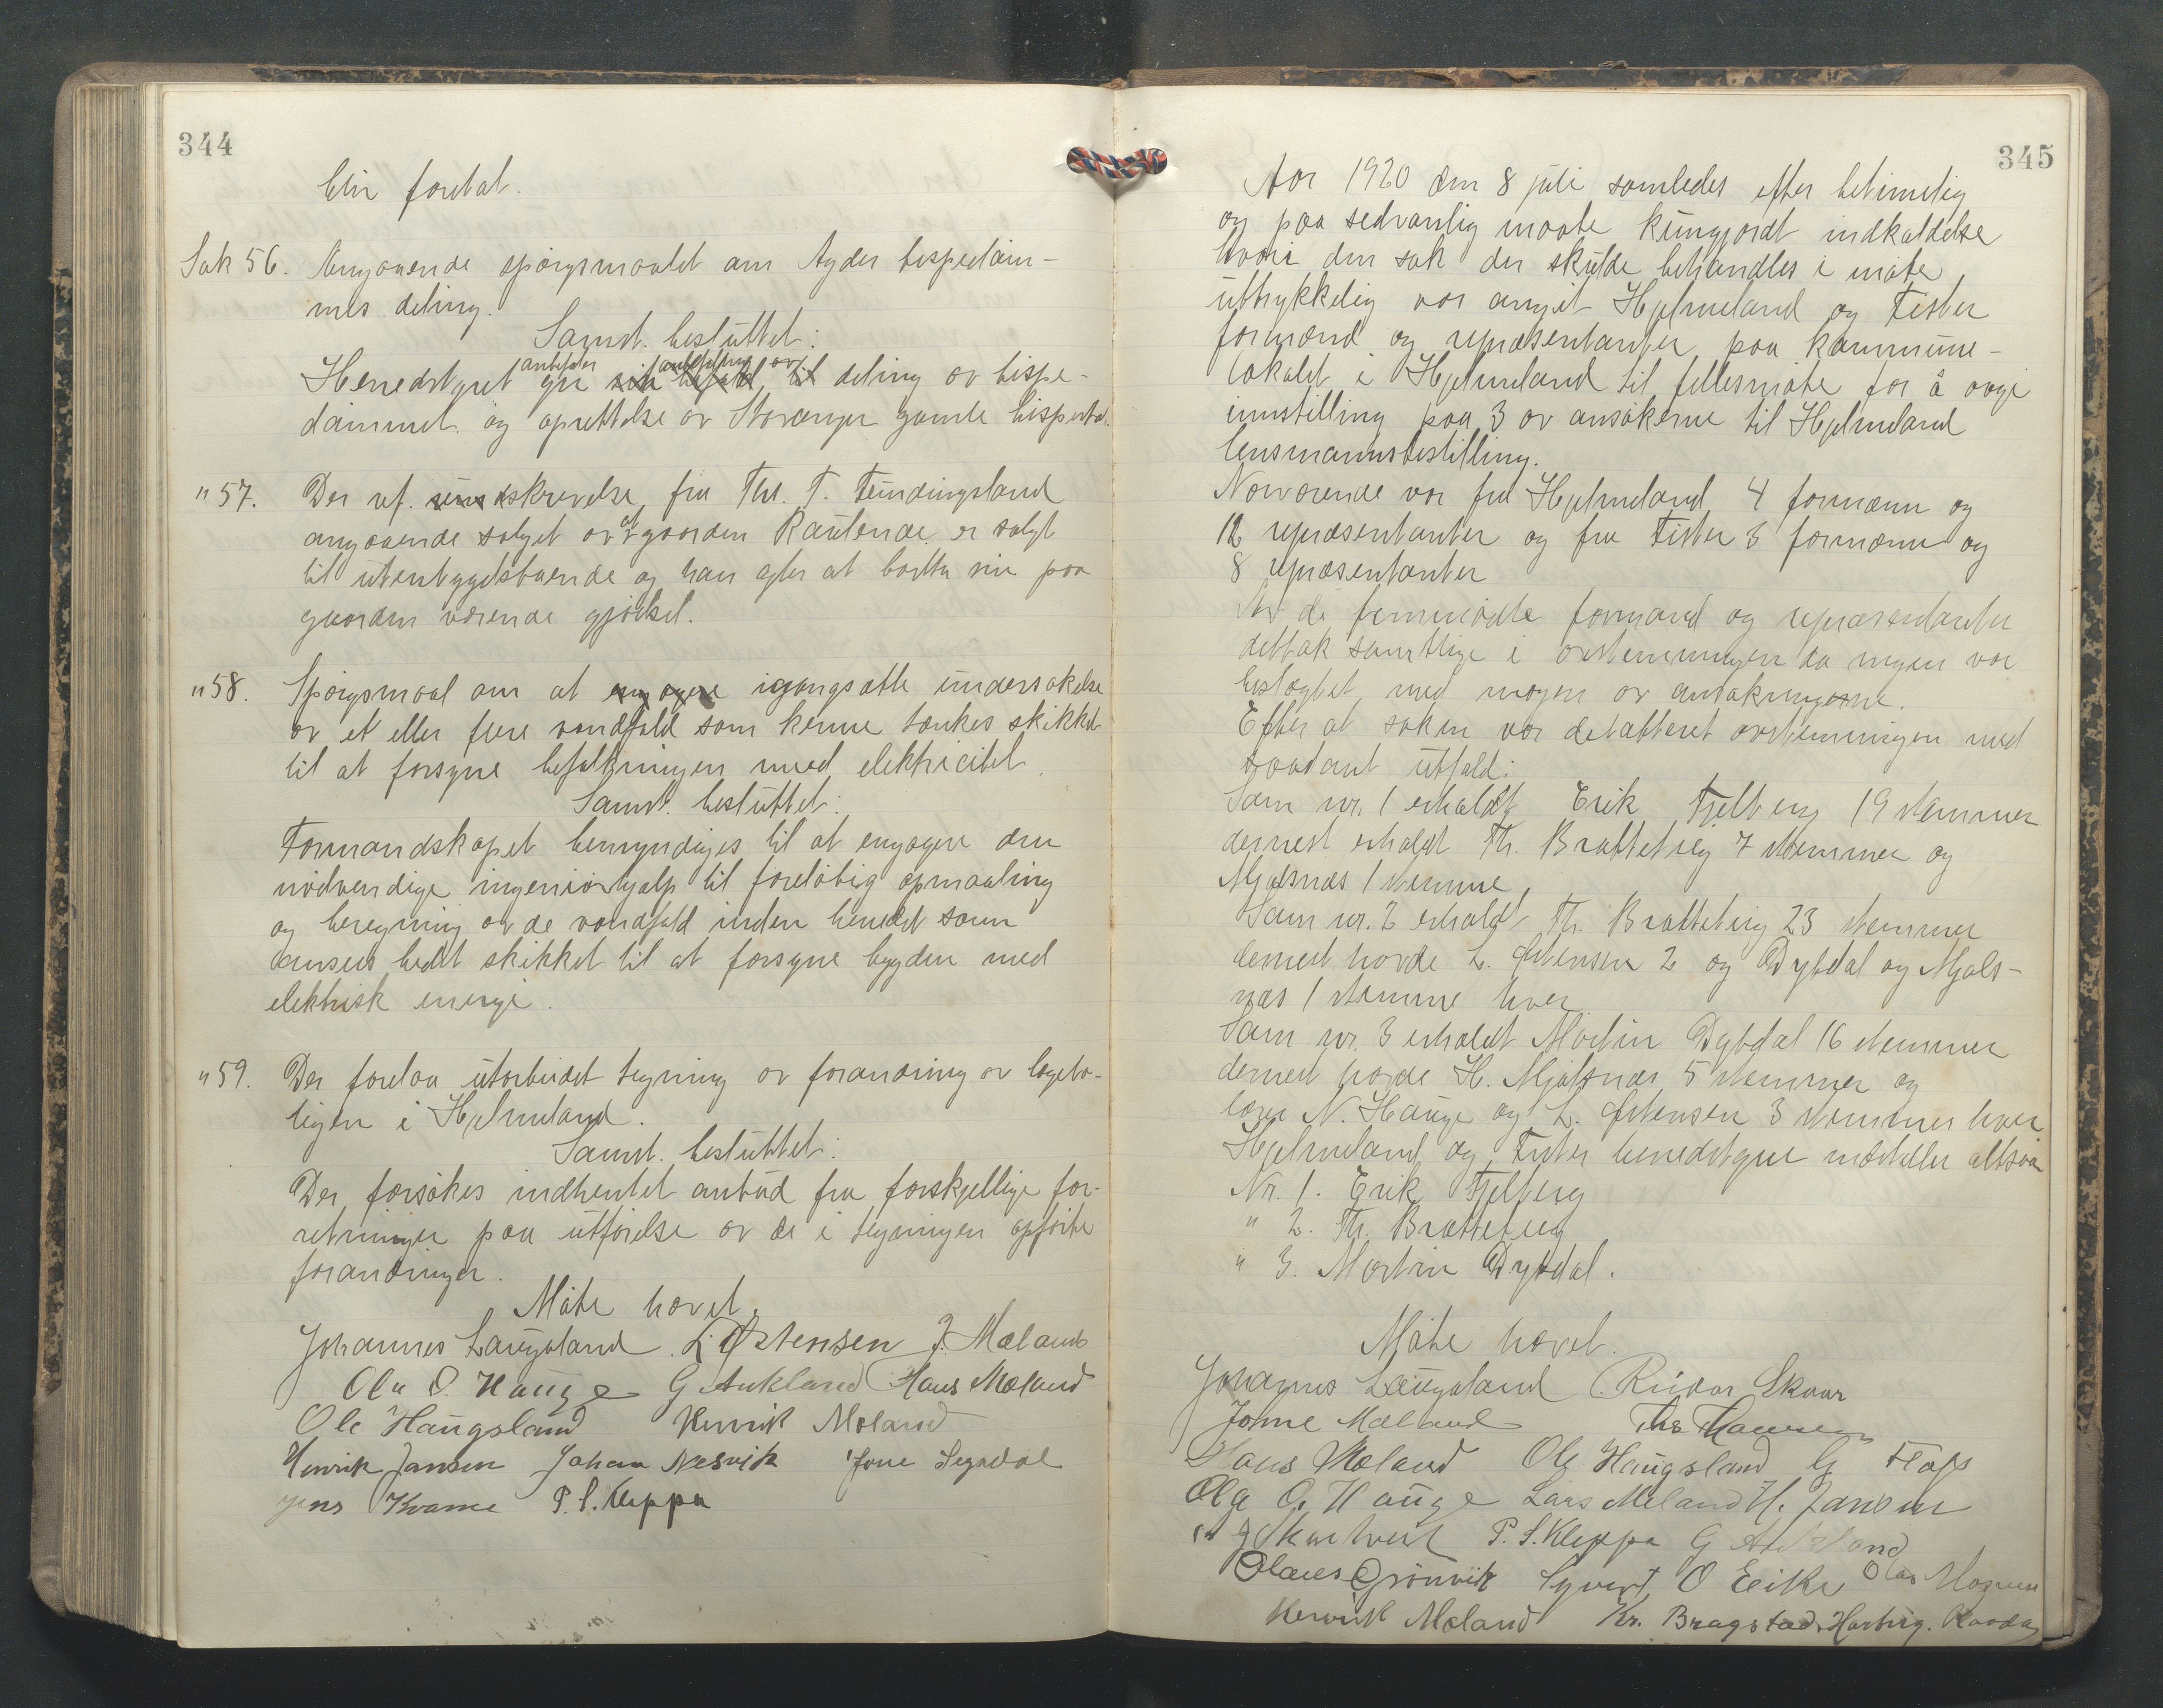 344
blir foretat.
Sak 56. Angaaende spørgsmaalet om Agder bispedøm-
mes deling.
Samst. besluttet:
Herredstyret anbefaler deling av bispe-
dømmet og oprettelse av Stavanger gamle bispestol.
" 57. Der ref. skrivelse fra Thr. T. Funningsland
angaaende salget av at gaarden Rautende er solgt
til utenbygdsboende og han agter at bortta sin paa
gaarden værende gjødsel.
" 58. Spørgsmaal om at igangsætte undersøkelse
av et eller flere vandfald som kunne tænkes skikket
til at forsyne befolkningen med elektricitet.
Samst. besluttet:
Formandskapet bemyndiges til at engagere den
nødvendige ingeniørhjælp til foreløbig opmaaling
og beregning av de vandfald inden herredet som
ansees bedst skikket til at forsyne bygden med
elektrisk energi.
" 59. Der forelaa utarbeidet tegning av forandring av lægebo-
ligen i Hjelmeland.
Samst. besluttet:
Der forsøkes indhentet anbud fra forskjellige for-
retninger paa utførelse av de i tegningen opførte
forandringer.
Møte hævet.
Johannes Laugaland L. Østensen J. Mæland
Ola O. Hauge G Aukland Hans Mæland
Ole Haugsland Henrik Mæland
Henrik Jansen Johan Nesvik Jone Segadal
Jens Kvame P. S. Kleppa
345
Aar 1920 den 8 juli samledes efter betimelig
og paa sedvanlig maate kungjordt indkaldelse
hvori den sak der skulde behandles i møte
uttrykkelig var angit Hjelmeland og Fister
formænd og repræsentanter paa kommune-
lokalet i Hjelmeland til fellesmøte for å avgi
innstilling paa 3 av ansøkerne til Hjelmeland
lensmannsbestilling.
Nærværende var fra Hjelmeland 4 formænn og
12 repræsentanter og fra Fister 3 formænn og
8 repræsentanter
Av de fremmødte formænd og repræsentanter
deltok samtlige i avstemningen da ingen var
beslegtet med nogen av ansøkningerne.
Efter at saken var debatteret avstemningen med
saadant utfald:
Som nr. 1 erholdt Erik Fjelberg 19 stemmer
dernest erholdt Th. Brattebeig 7 stemmer og
Mjølsnæs 1 stemme
Som nr. 2 erholdt Th. Brattebeig 23 stemmer
dernest havde L. Østensen 2 og Dybdal og Mjøls-
næs 1 stemme hver
Som nr. 3 erholdt Martin Dybdal 16 stemmer
dernest havde H. Mjølsnæs 5 stemmer og
lærer N. Hauge og L. Østensen 3 stemmer hver
Hjelmeland og Fister herredstyrer indstiller altsaa
Nr. 1. Erik Fjelberg
" 2. Th. Brattebeig
" 3. Martin Dybdal.
Møte hævet.
Johannes Laugaland Reidar Skaar
Jonne Mæland Ths Hausen
Hans Mæland Ole Haugsland
Ola O. Hauge Lars Meland H. Jansen
P. S. Kleppa G Aukland
Olaus Grønvik Syvert O Eike
Henrik Mæland Kr. Bragstad